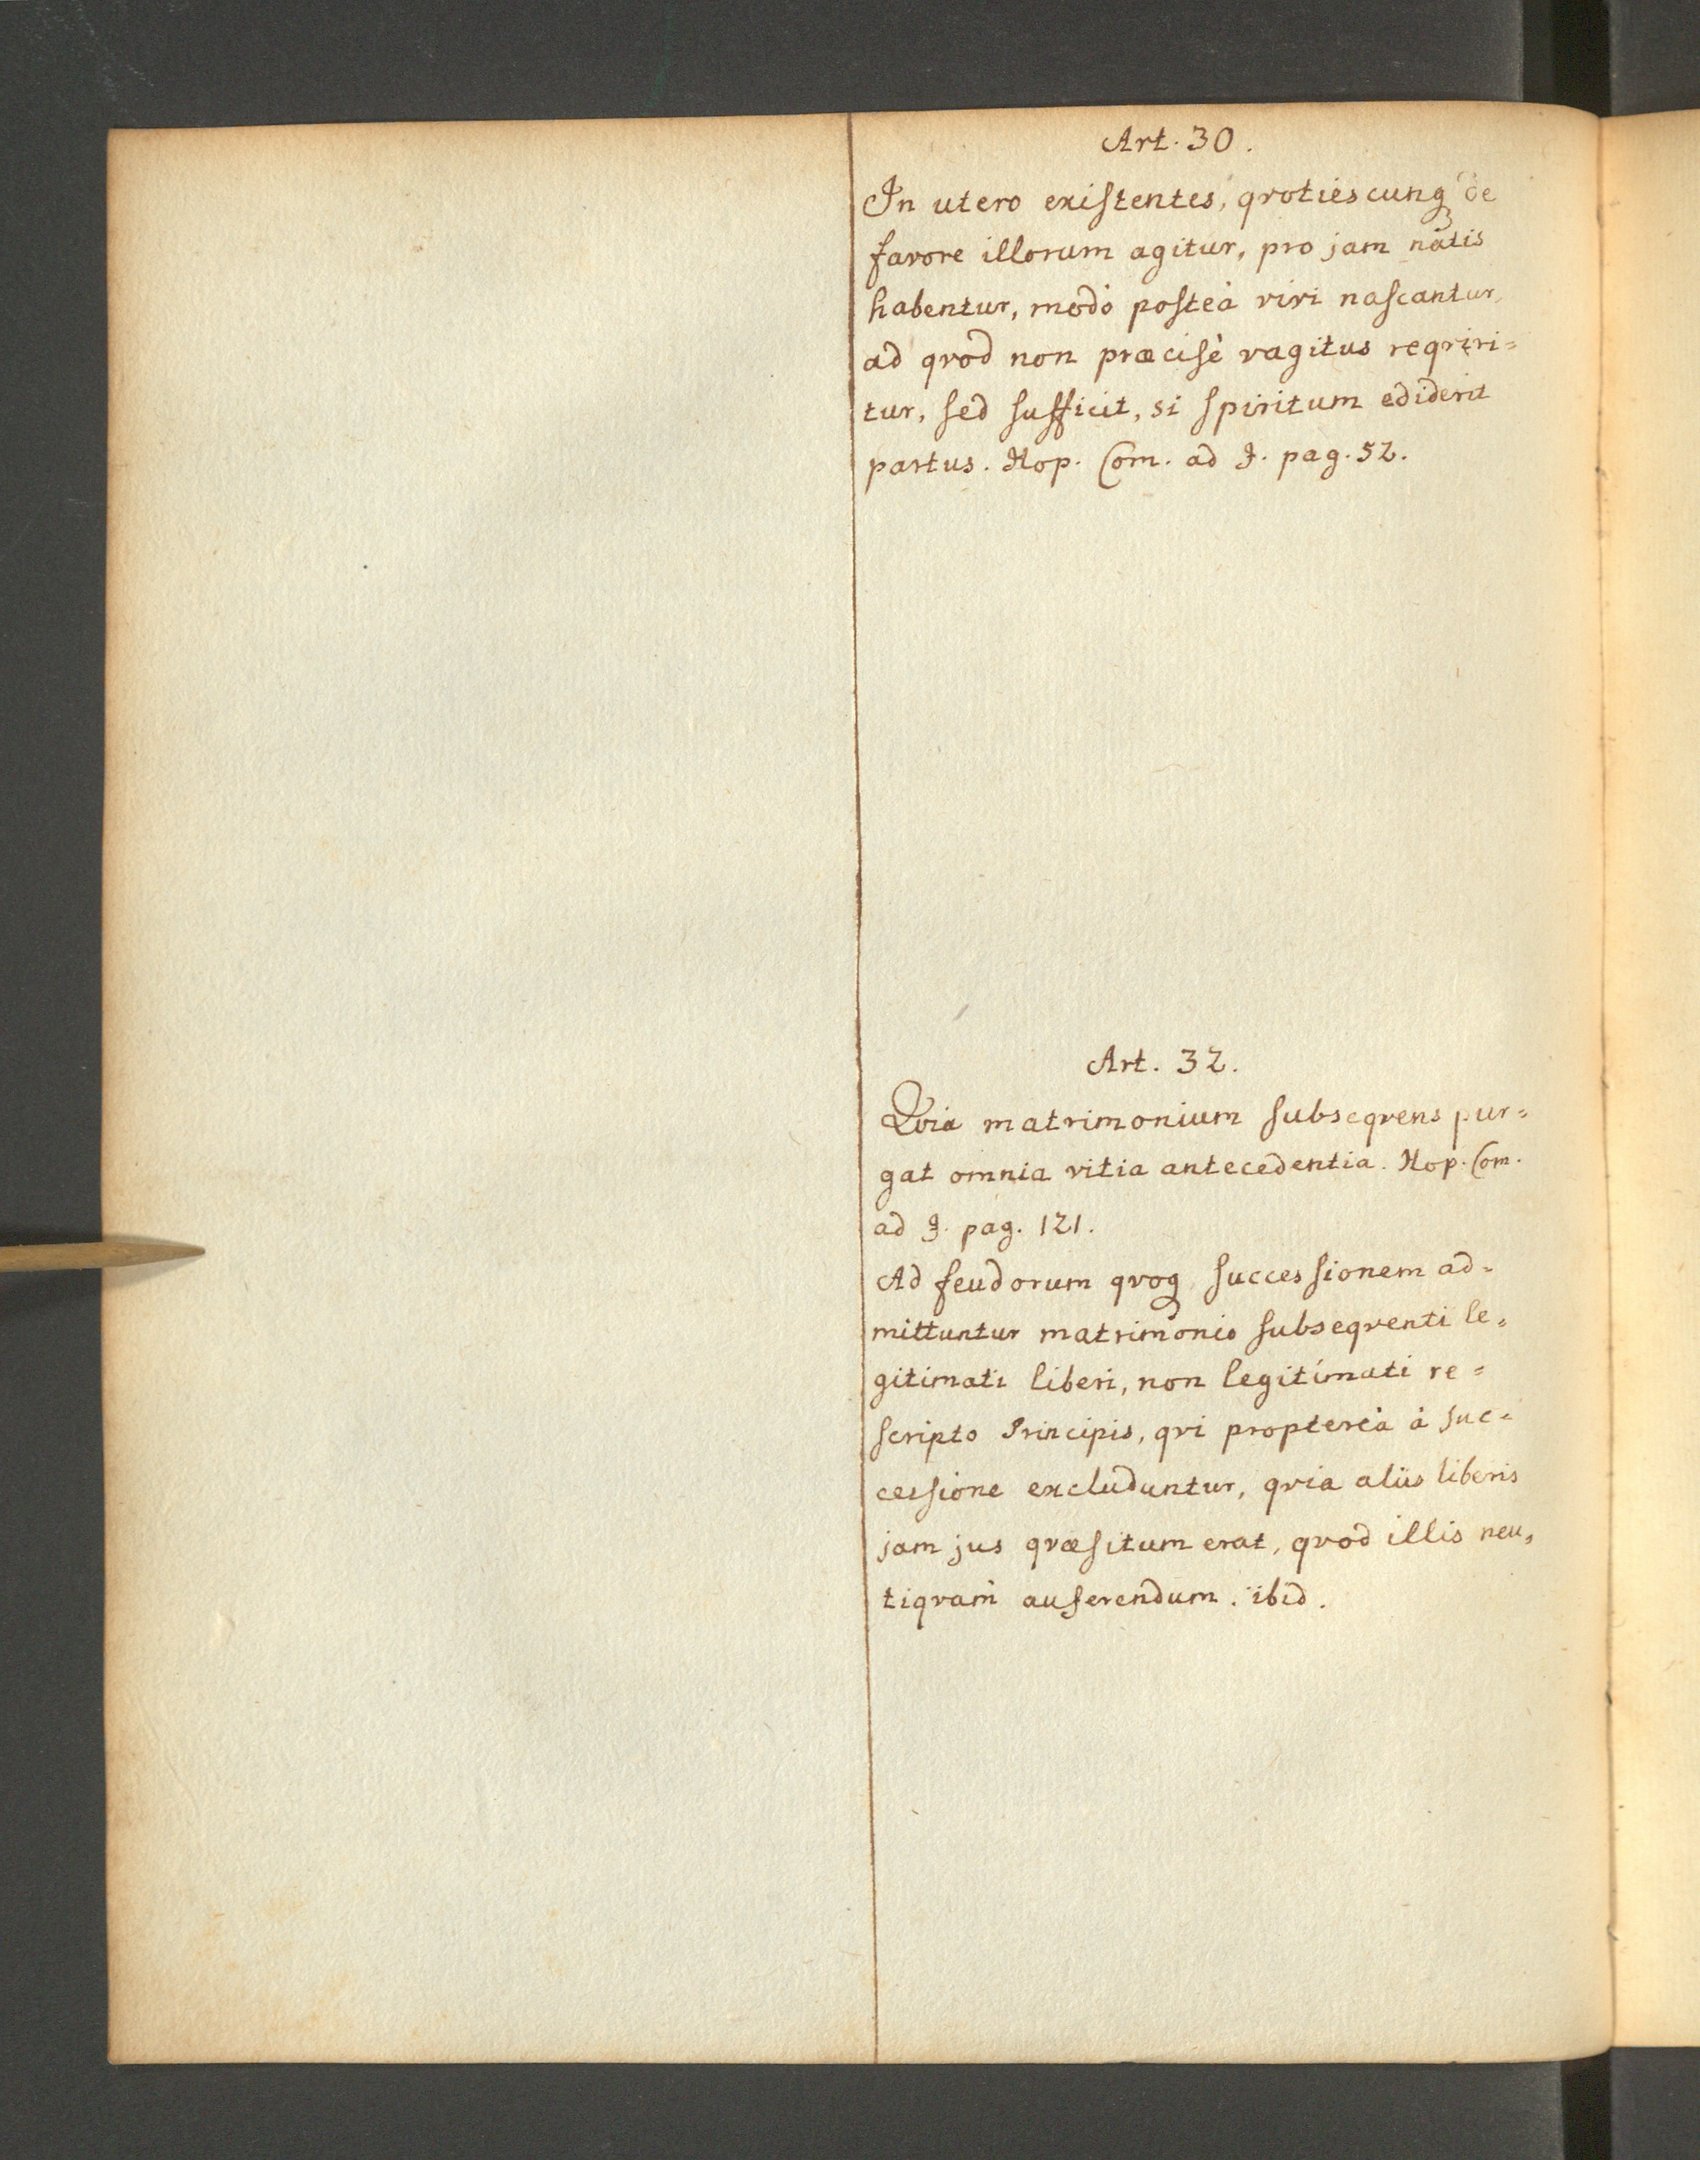 Art. 30.
In utero existentes, qvotiescunq de
favore illorum agitur, pro jam natis
habentur, modò posteà vivi nascantur,
ad qvod non præcisè vagitus reqviri=
tur, sed sufficit, si spiritum ediderit
partus. Hop. Com. ad I. pag. 52.
Art. 32.
Qvia matrimonium subseqvens pur=
gat omnia vitia antecedentia. Hop. Com.
ad I. pag. 121.
Ad feudorum qvoq successionem ad=
mittuntur matrimonio subseqventi le=
gitimati liberi, non legitimati re=
scripto Principis, qvi proptereà à suc=
cessione excluduntur, qvia aliis liberis
jam jus qvæsitum erat, qvod illis neu=
tiqvam auferendum. ibid.